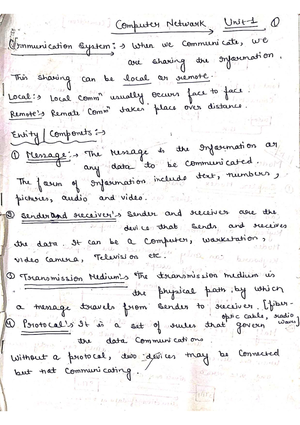 Computer Network Unit-1 ①
Communication System:→ When we communicate, we
are sharing the information.
This sharing can be local or remote.
Local:→ Local Commⁿ usually occurs face to face.
Remote:→ Remote Commⁿ takes place over distance.
Entity/Componets:→
① Message:→ The Message is the Information or
any data to be communicated.
The form of Information include text, numbers,
pictures, audio and video.
② Sender and receiver:→ Sender and receiver are the
device that sends and receives
the data. It can be a Computer, workstation,
video camera, Television etc.
③ Transmission Medium:→ The transmission medium is
the physical path by which
a message travels from Sender to receiver [fiber-
optic cable, radio
waves]
④ Protocal:→ It is a set of rules that govern
the data Communications
Without a protocal, two devices may be Connected
but not Communicating.